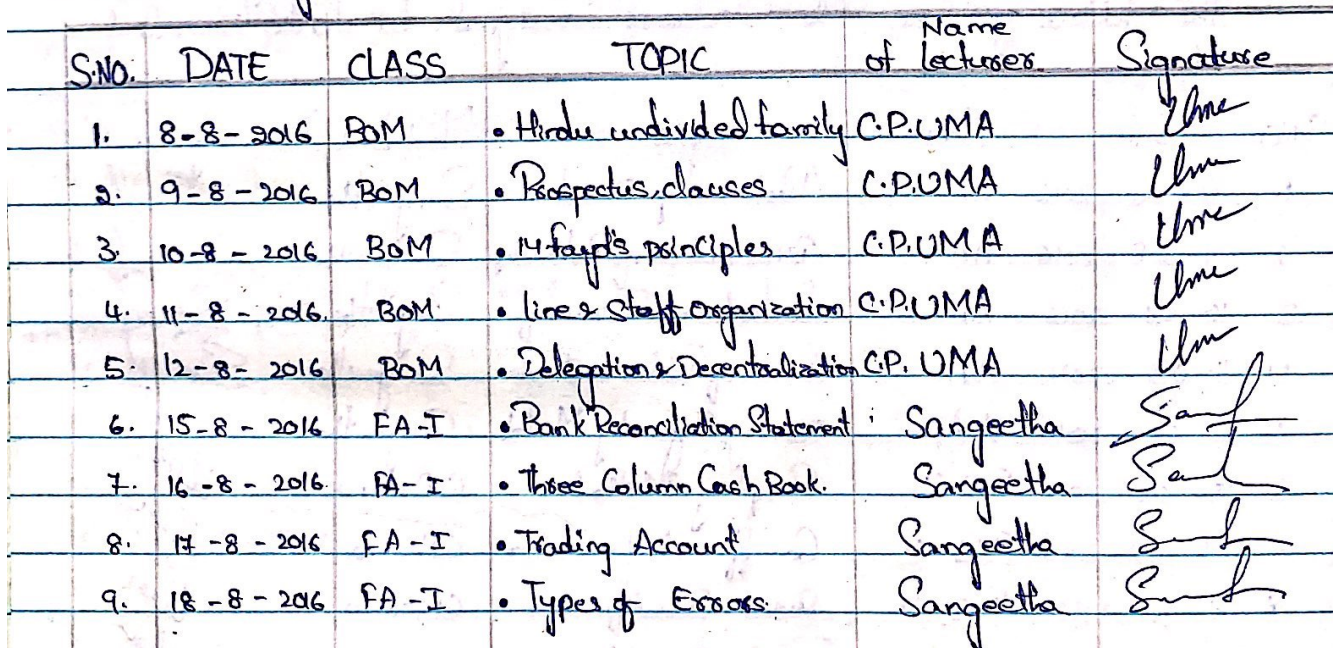 S.NO. DATE CLASS TOPIC Name of lecturer Signature
1. 8-8-2016 BOM • Hindu undivided family C.P.UMA Uma
2. 9-8-2016 BOM • Prospectus, clauses C.P.UMA Uma
3. 10-8-2016 BOM • 14 fayol's principles C.P.UMA Uma
4. 11-8-2016. BOM. • line & Staff Organization C.P.UMA Uma
5. 12-8-2016 BOM • Delegation & Decentralization C.P. UMA Uma
6. 15-8-2016 FA-I • Bank Reconciliation Statement Sangeetha
7. 16-8-2016. FA-I • Three Column Cash Book. Sangeetha
8. 17-8-2016 FA-I • Trading Account Sangeetha
9. 18-8-2016 FA-I • Types of Errors. Sangeetha